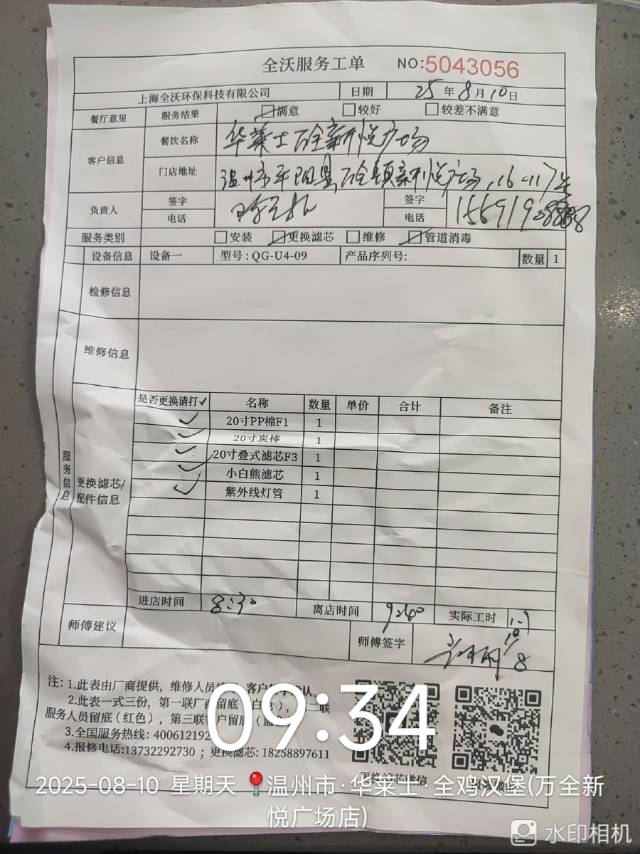 全沃服务工单 NO:5043056
上海全沃环保科技有限公司 日期 25年8月10日
餐厅意见 服务结果 ☑满意 □较好 □较差不满意
客户信息 餐饮名称 华莱士万全新悦广场
门店地址 温州市平阳县万全镇新悦广场,16-17号
负责人 签字 签字
电话 电话
服务类别 □安装 ☑更换滤芯 □维修 ☑管道消毒
设备信息 设备一 型号:QG-U4-09 产品序列号: 数量 1
检修信息
维修信息
服务信息
更换滤芯/配件信息
是否更换请打✓ 名称 数量 单价 合计 备注
✓ 20寸PP棉F1 1
✓ 20寸炭棒 1
✓ 20寸叠式滤芯F3 1
✓ 小白熊滤芯 1
✓ 紫外线灯管 1
进店时间 8:30 离店时间 实际工时
师傅建议 师傅签字
注:1.此表由厂商提供,维修人员 客户 认。
2.此表一式三份,第一联厂商留底 白色 二联
服务人员留底(红色),第三联客户留底
3.全国服务热线:400612192
4.报修电话:13732292730;更换滤芯:18258897611
09:34
2025-08-10 星期天 温州市·华莱士·全鸡汉堡(万全新
悦广场店)
水印相机